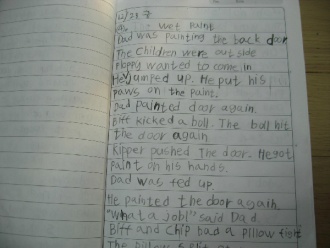 12/28 금
wet paint
Dad was painting the back door
The children were out side
Floppy wanted to come in
He jumped up. He put his
paws on the paint.
Dad painted door again.
Biff kicked a ball. The ball hit
the door again
Kipper pushed The door. He got
paint on his hands.
Dad was fed up.
He painted the door again
"What a job!" said Dad
Biff and Chip had a pillow fight
The pillow split